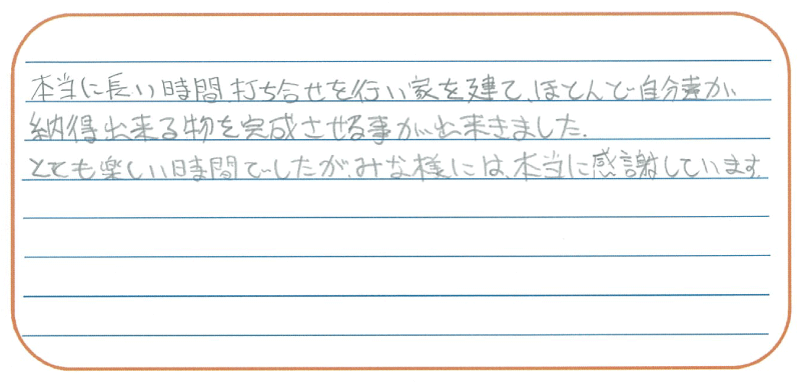 本当に長い時間、打ち合せを行い家を建て、ほとんど自分達が
納得出来る物を完成させる事が出来きました。
とても楽しい時間でしたが、みな様には、本当に感謝しています。